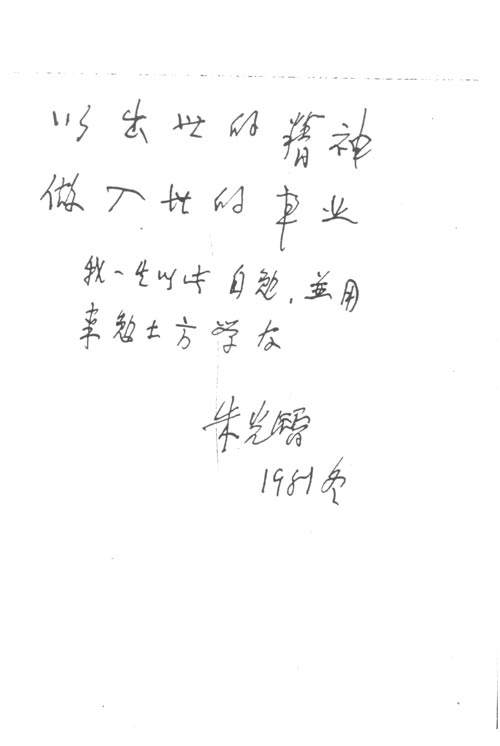 以出世的精神
做入世的事业
我一生以此自勉，並用
来勉士方学友
朱光潜
1981冬